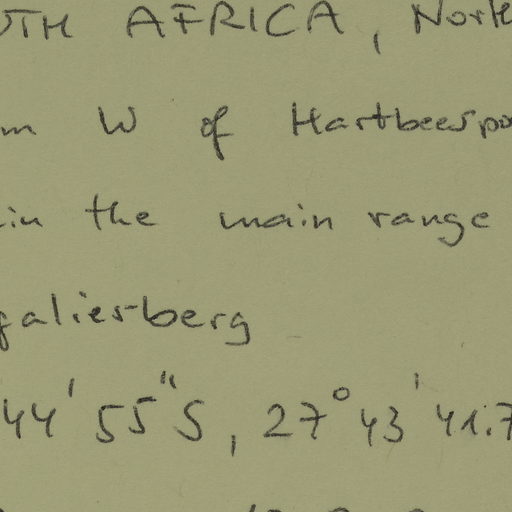 UTH AFRICA, North
m W of Hartbeespo
in the main range
galiesberg
44' 55"S, 27°43'41.7